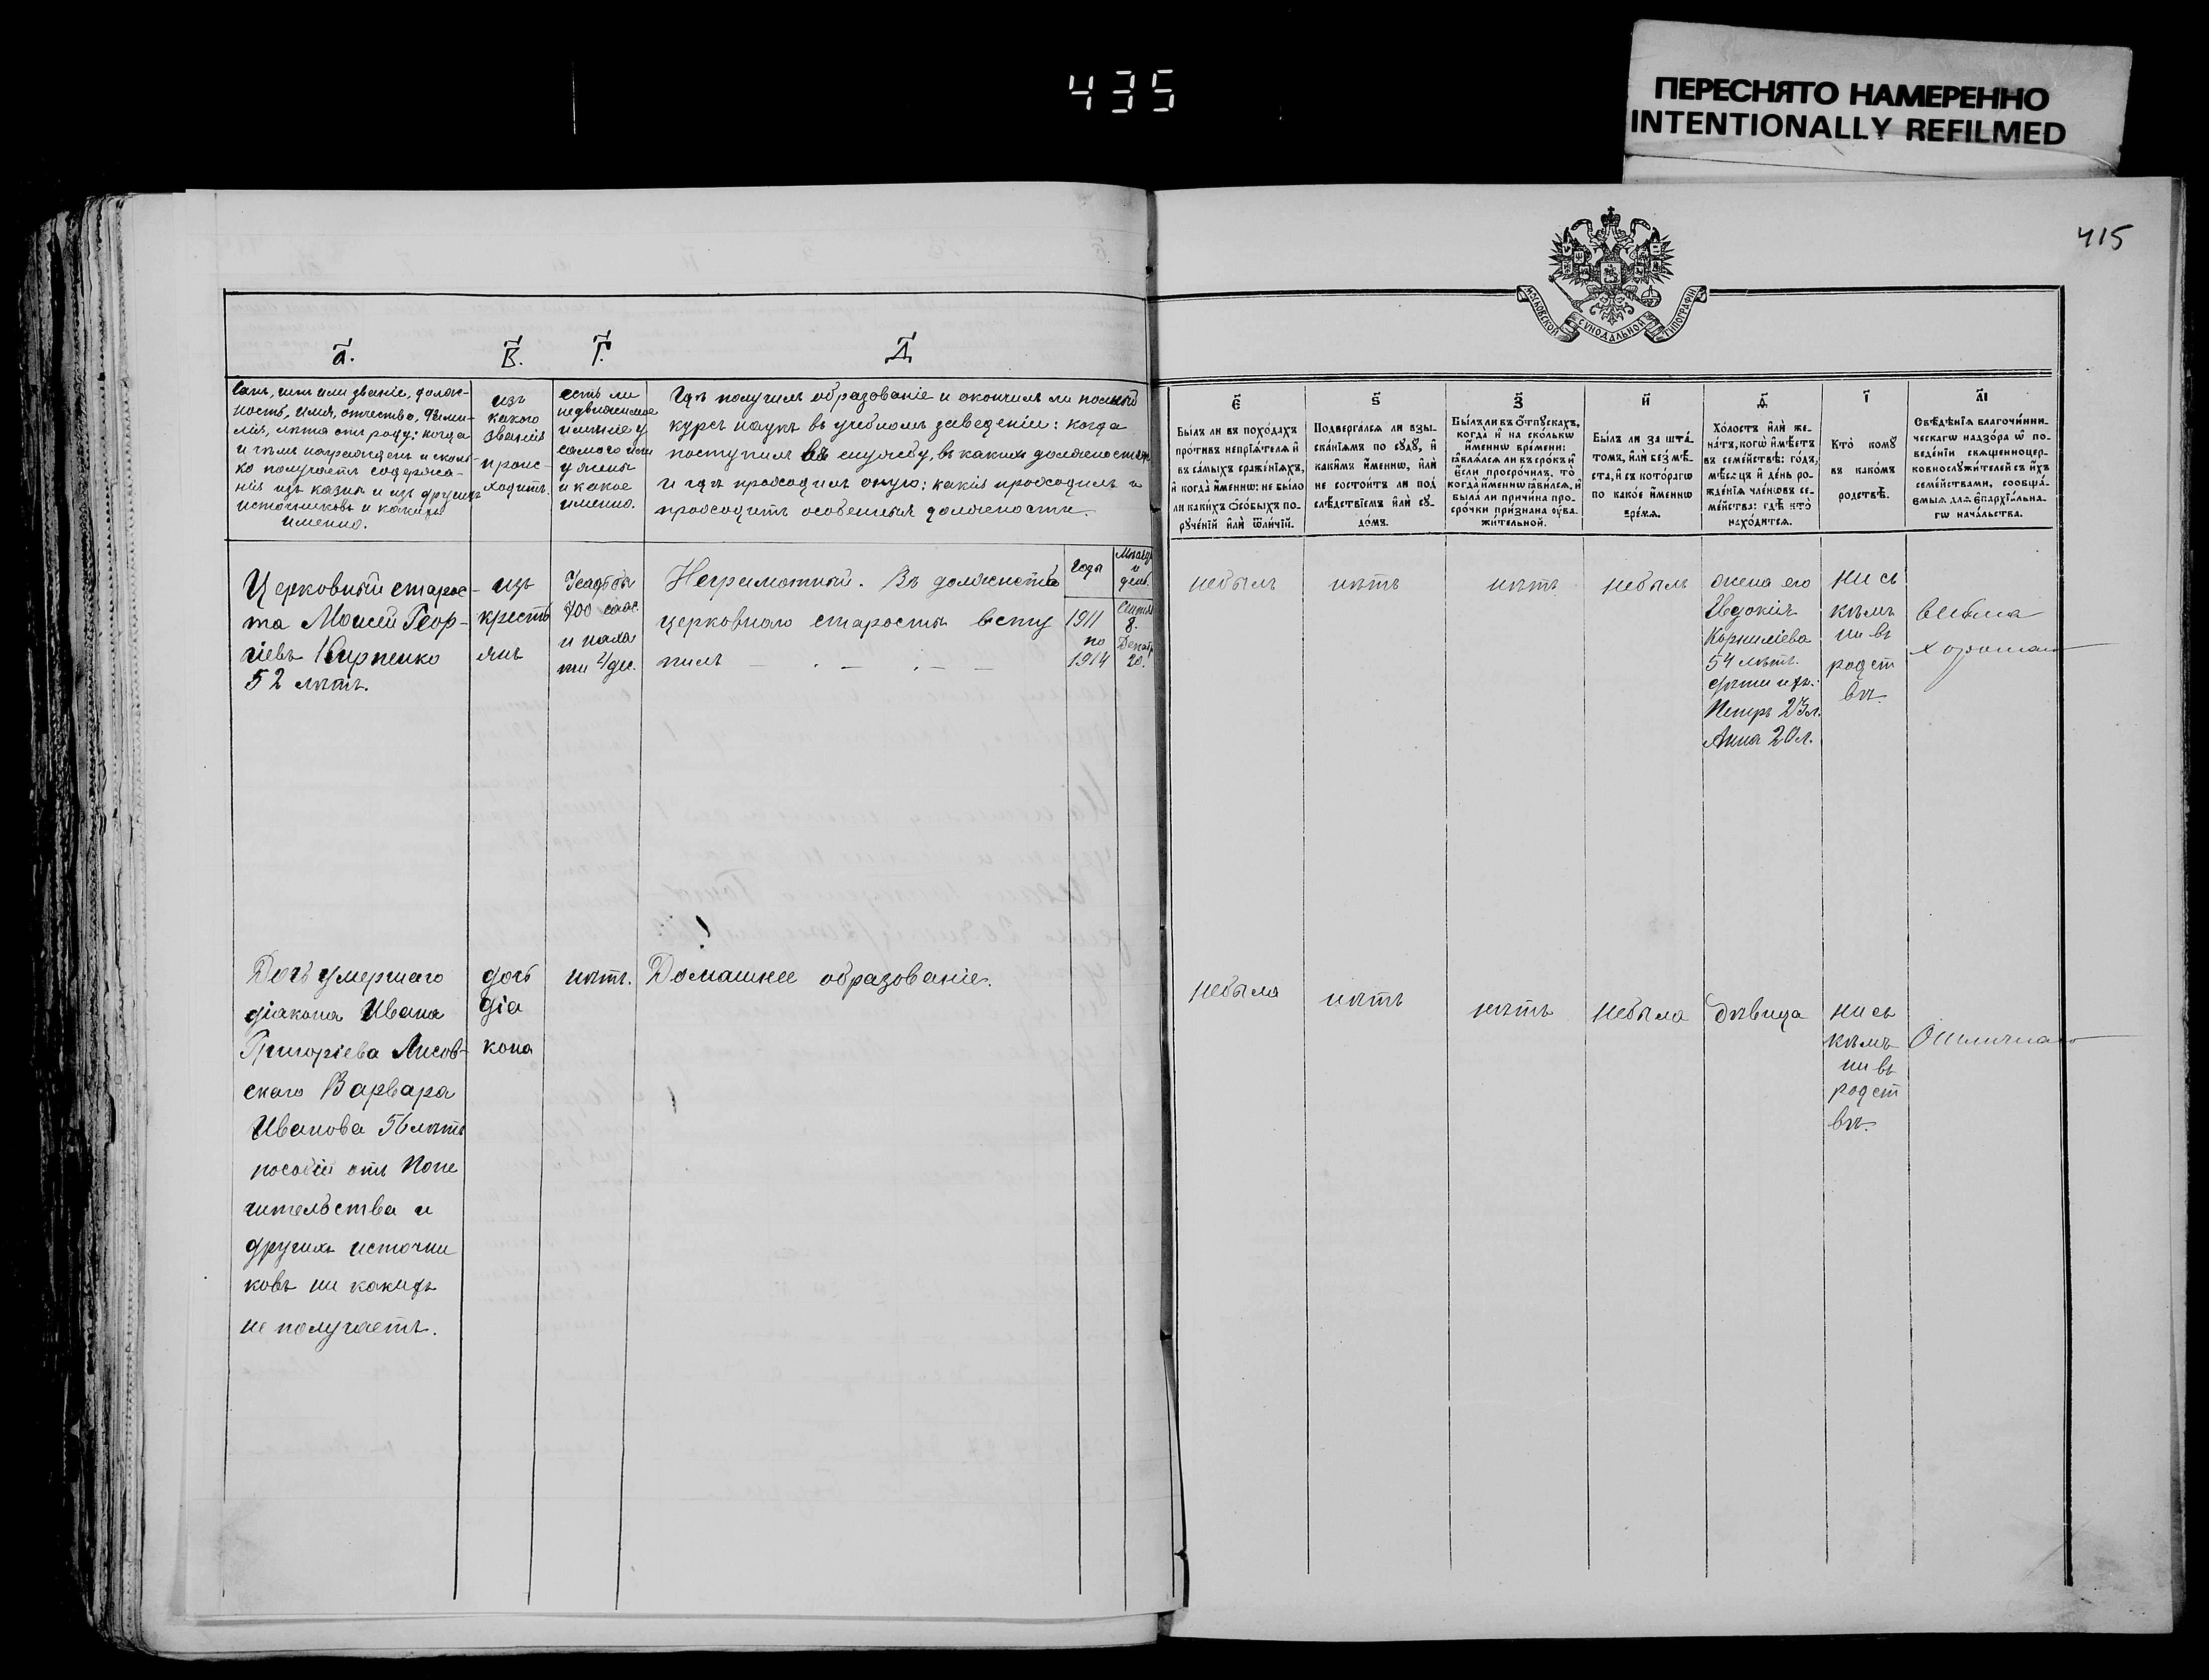 435
ПЕРЕСНЯТО НАМЕРЕННО
INTENTIONALLY REFILMED
415
МОСКОВСКОЙ СУНОДАЛЬНОЙ ТИПОГРАФІИ
а҃.
в҃.
г҃.
д҃
Санъ, или званіе, долж-
ность, имя, отчество, фами-
лія, лѣта отъ роду: когда
и чѣмъ награжденъ и сколь-
ко получаетъ содержа-
нія изъ казны и изъ другихъ
источниковъ и какихъ
именно.
изъ
какого
званія
проис-
ходитъ.
есть ли
недвижимое
имѣніе у
самого или
у жены
и какое
именно.
Гдѣ получилъ образованіе и окончилъ ли полный
курсъ наукъ въ учебномъ заведеніи: когда
поступилъ въ службу, въ какихъ должностяхъ
и гдѣ проходилъ оную; какія проходилъ и
проходитъ особенныя должности.
є҃
Бы́лъ ли въ похо́дахъ
проти́въ непрїѧ́телѧ и҆
въ са́мыхъ сраже́нїѧхъ,
и҆ когда̀ и҆́меннѡ: не бы́ло
ли каки́хъ ѻ҆со́быхъ по-
рꙋче́нїй и҆лѝ ѿли́чїй.
ѕ҃
Подверга́лсѧ ли взы-
ска́нїѧмъ по сꙋдꙋ̀, и҆
каки́мъ и҆́меннѡ, и҆лѝ
не состои́тъ ли под
слѣ́дствїемъ и҆лѝ сꙋ-
до́мъ.
з҃
Бы́лъ ли въ ѿпꙋска́хъ,
когда̀ и҆ на ско́лькѡ
и҆́меннѡ вре́мени:
ꙗ҆влѧ́лсѧ ли въ сро́къ и҆
є҆́сли просро́чилъ, то̀
когда̀ и҆́меннѡ ꙗ҆ви́лсѧ, и҆
была́ ли причи́на про-
сро́чки при́знана ᲂу҆ва-
жи́тельной.
и҃
Бы́лъ ли за шта́-
томъ, и҆лѝ без̾ мѣ́-
ста, и҆ съ кото́рагѡ
по како́е и҆́меннѡ
вре́мѧ.
ѳ҃
Хо́лостъ и҆лѝ же-
на́тъ, кого̀ и҆мѣ́етъ
въ семе́йствѣ: го́дъ,
мѣ́сѧцъ и҆ де́нь ро-
жде́нїѧ чле́новъ се-
ме́йства: гдѣ̀ кто̀
нахо́дитсѧ.
і҃
Кто̀ комꙋ̀
въ како́мъ
родствѣ̀.
а҃і
Свѣ́дѣнїѧ благочи́нни-
ческагѡ надзо́ра ѡ҆ по-
веде́нїи свѧщенноцер-
ковнослꙋжи́телей съ и҆́хъ
семе́йствами, сообща́-
ємыѧ длѧ є҆парх́їальна-
гѡ нача́льства.
Годы
Мѣсяцъ
и
день.
Церковный старос-
та Моисей Геор-
гіевъ Кирпенко
52 лѣтъ.
изъ
крестъ
янъ
Усадьбы
700 саж.
и паха
ти 4 дес.
Неграмотный. Въ должность
церковнаго старосты всту
пилъ
1911
по
1914
Сентяб
8.
Декаб
20.
небылъ
нѣтъ
нѣтъ
небылъ
жена его
Евдокія
Корниліева
54 лѣтъ.
дѣти ихъ:
Петръ 23 л.
Анна 20 л.
ни съ
кѣмъ
ни въ
родст
вѣ.
весьма
хорошаго
Дочь умершаго
діакона Ивана
Григоріева Лисов-
скаго Варвара
Иванова 56 лѣтъ
пособій отъ Попе
чительства и
другихъ источни
ковъ ни какихъ
не получаетъ.
дочь
діа
кона
нѣтъ.
Домашнее образованіе.
небыла
нѣтъ
нѣтъ
небыла
дѣвица
ни съ
кѣмъ
ни въ
родст
вѣ.
Отличнаго